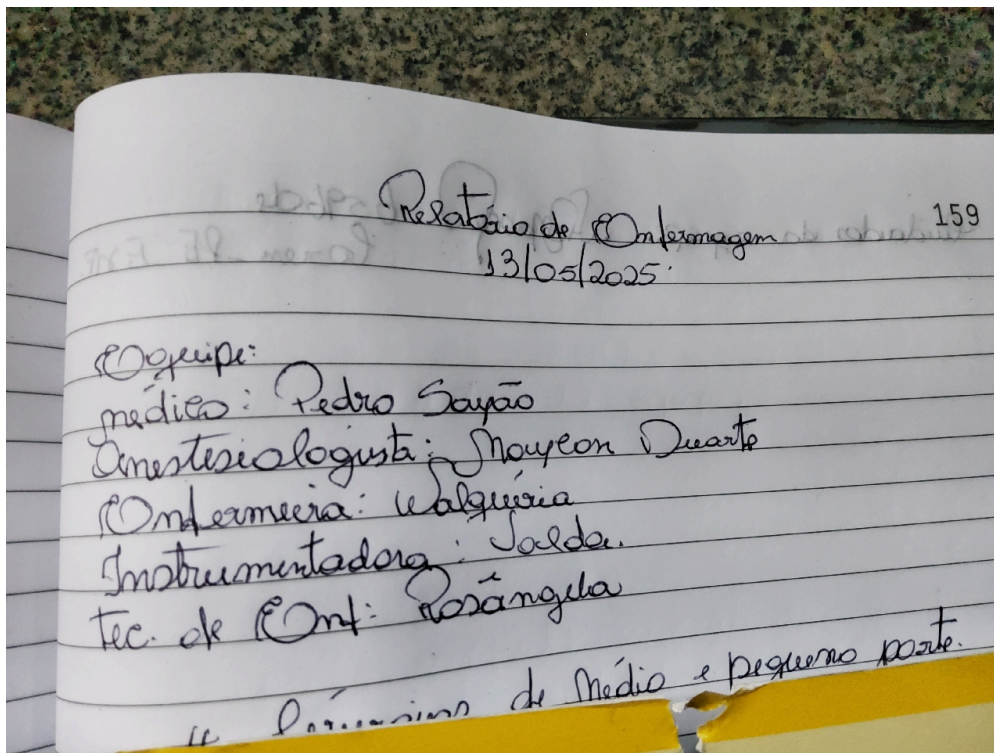 Relatório de Enfermagem
159
13/05/2025.
Equipe:
médico: Pedro Sayão
Anestesiologista: Maycon Duarte
Enfermeira: Walquíria
Instrumentadora: Joelda.
Tec. de Enf: Rosângela
de Médio e pequeno porte.